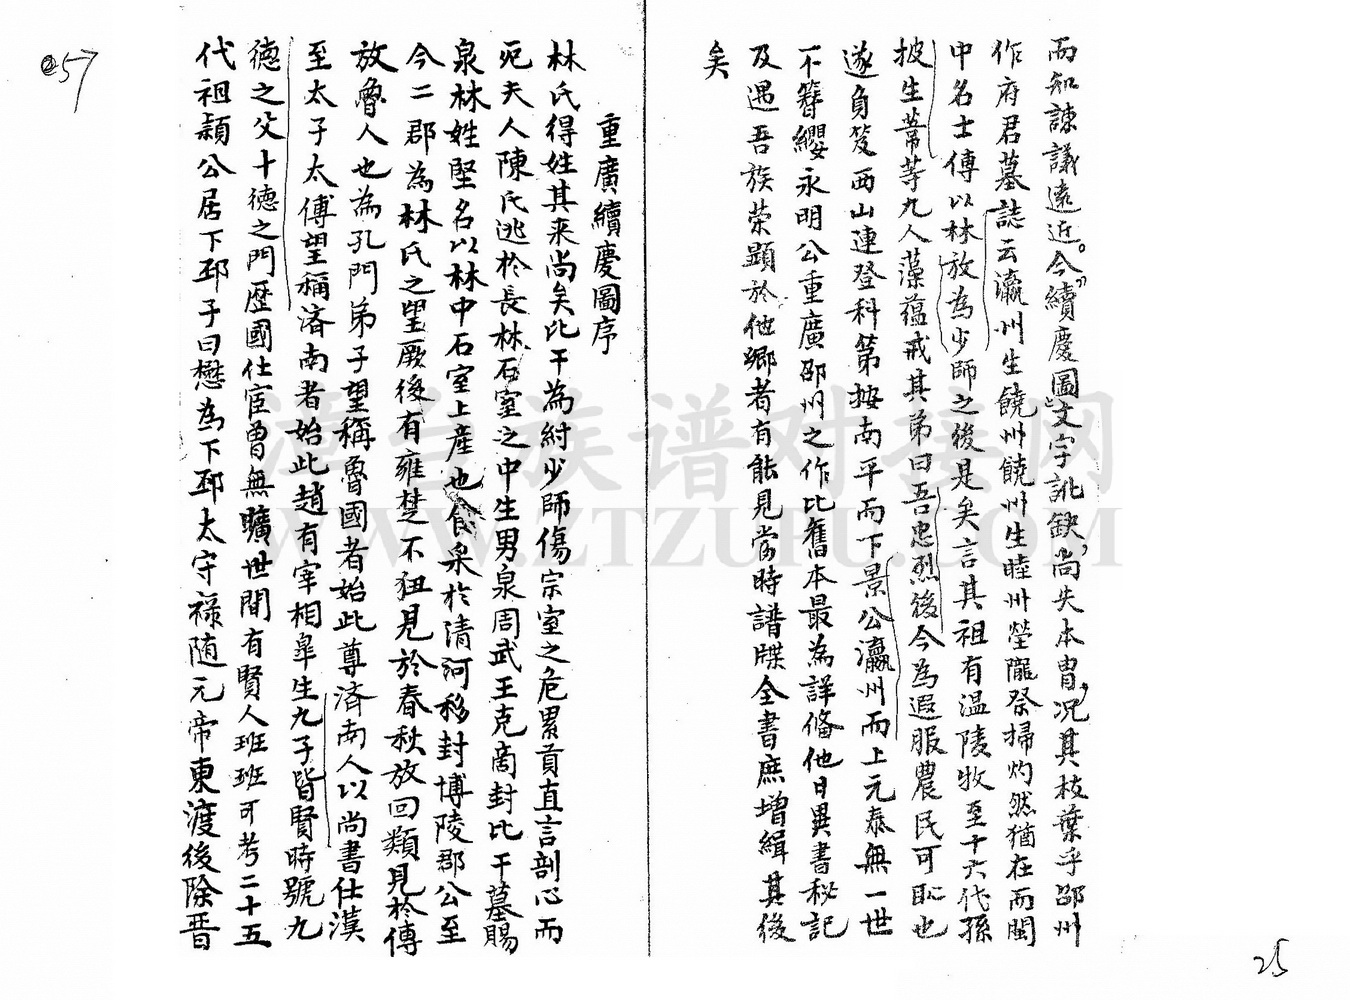 而知諫議遠近今續慶圖文字訛缺尚失本胄況其枝葉乎邵州
作府君墓誌云瀛州生饒州饒州生睦州塋隴祭掃灼然猶在而閩
中名士傳以林放為少師之後是矣言其祖有温陵牧至十六代孫
披生葦等九人藻蕴戒其弟曰吾忠烈後今為遐服農民可恥也
遂負笈西山連登科第按南平而下景公瀛州而上元泰無一世
不簪纓永明公重廣邵州之作比舊本最為詳備他日異書秘記
及遇吾族荣顯於他鄉者有能見當時譜牒全書庶增緝其後
矣
重廣續慶圖序
林氏得姓其来尚矣比干為紂少師傷宗室之危累貢直言剖心而
死夫人陳氏逃於長林石室之中生男泉周武王克商封比干墓賜
泉林姓堅名以林中石室上產也食采於清河移封博陵郡公至
今二郡為林氏之望厥後有雍楚不狃見於春秋放回類見於傳
放魯人也為孔門弟子望稱魯國者始此尊济南人以尚書仕漢
至太子太傅望稱济南者始此趙有宰相皐生九子皆賢時號九
德之父十德之門歷國仕宦曾無曠世間有賢人班班可考二十五
代祖穎公居下邳子曰懋為下邳太守禄随元帝東渡後除晋
257
25
漳台族谱对接网
WWW.ZTZUPU.COM